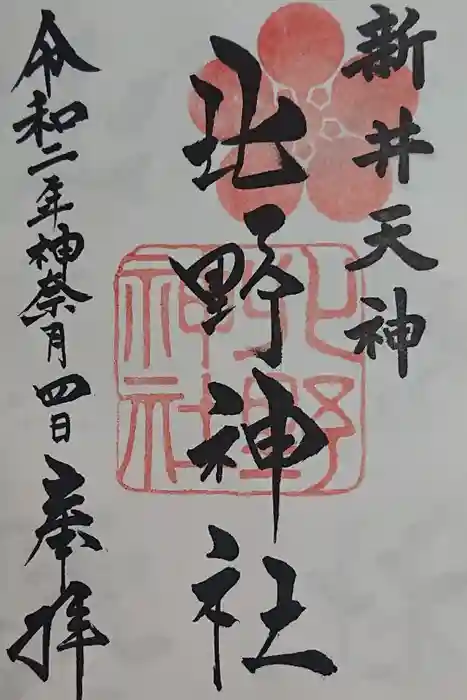 新井天神
北野神社
北野
神社
令和二年神奈月四日
奉拝